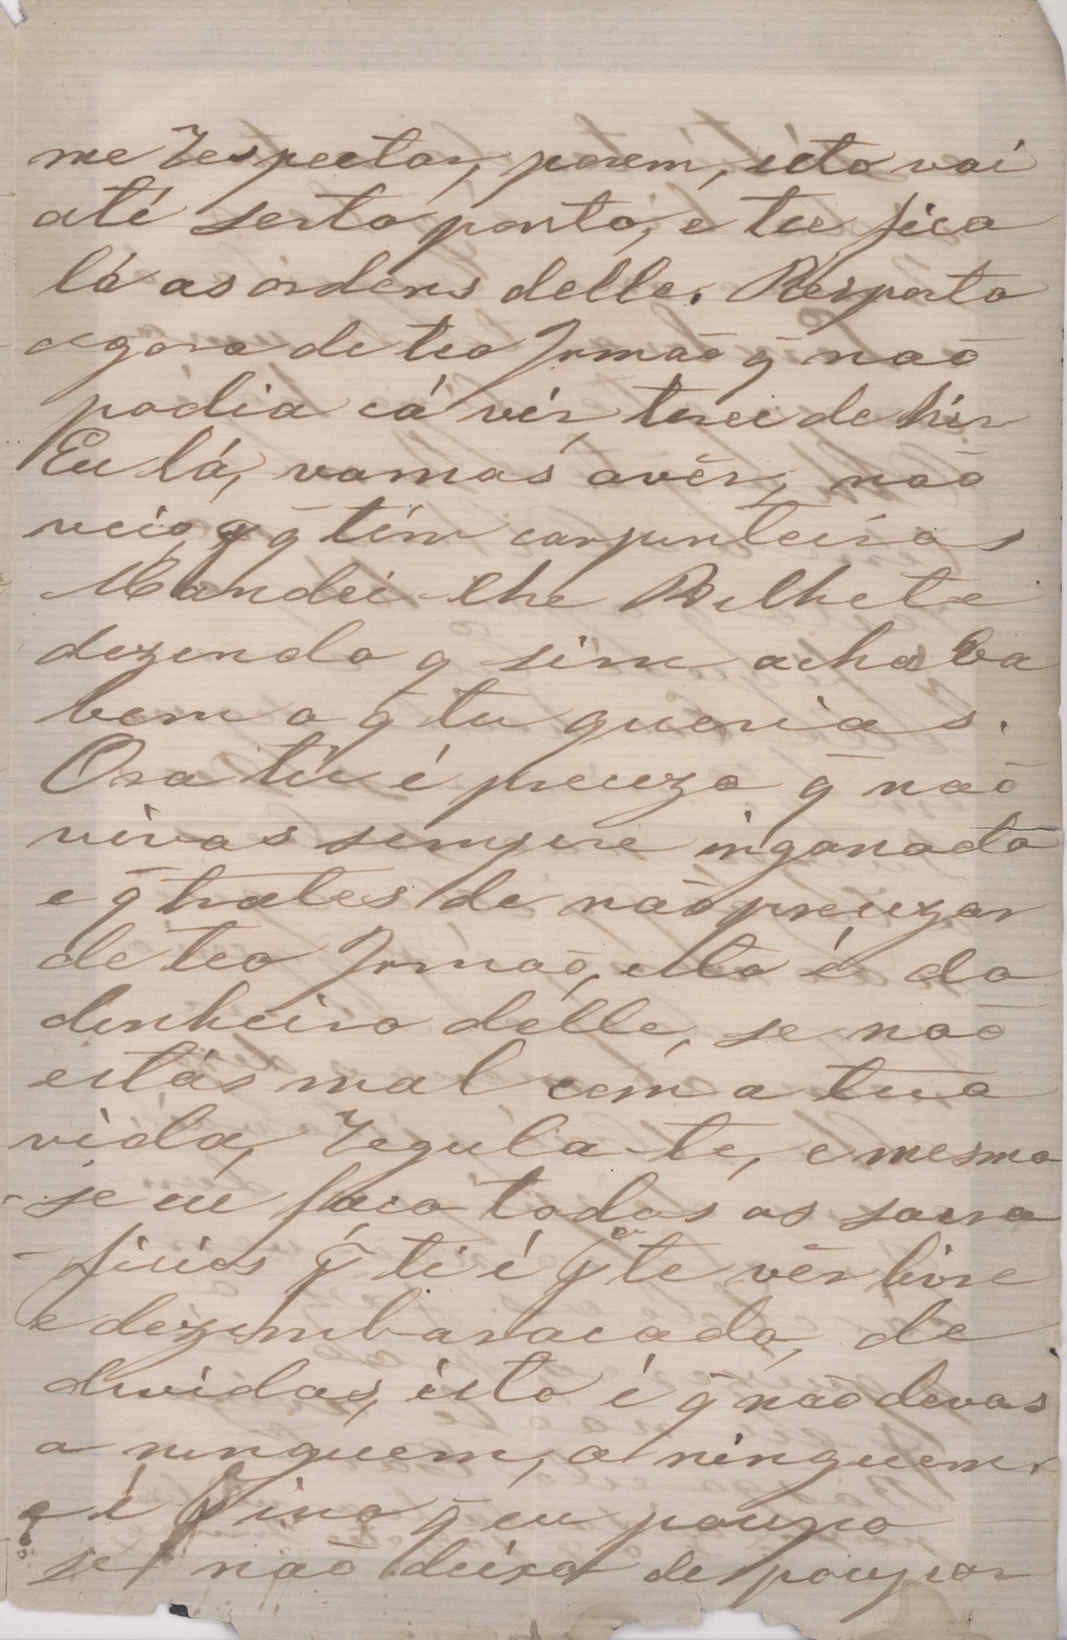 me Respectar, porem, isto vai
até serto ponto, e tu fica
lá as órdens delle. Resposta
agora de teo Jrmaõ q̃ naõ
pódia cá vír, terei de hír
Eu lá, vamos avêr, naõ
veio, q̃ tím carpinteiros
Mandei-lhe Bilhete
dezendo q̃ sim achaba
bem o q̃ tu querias.
Ora tu é preuzo q̃ naõ
vivas sempre inganado
e q̃ trates de não preuzar
de teo Jrmaõ, isto é do
dinheiro délle, se naõ
estás mal com a tua
vida, Regula-te, e mesmo
se eu faco todos os sacra
-ficios p̃ ti é p̃ te vêr livre
e dezembaracado, de
dividas, isto é q̃ não devas
a ninguem, a ninguem.
q̃ eu poupo
se não deixo de poupar